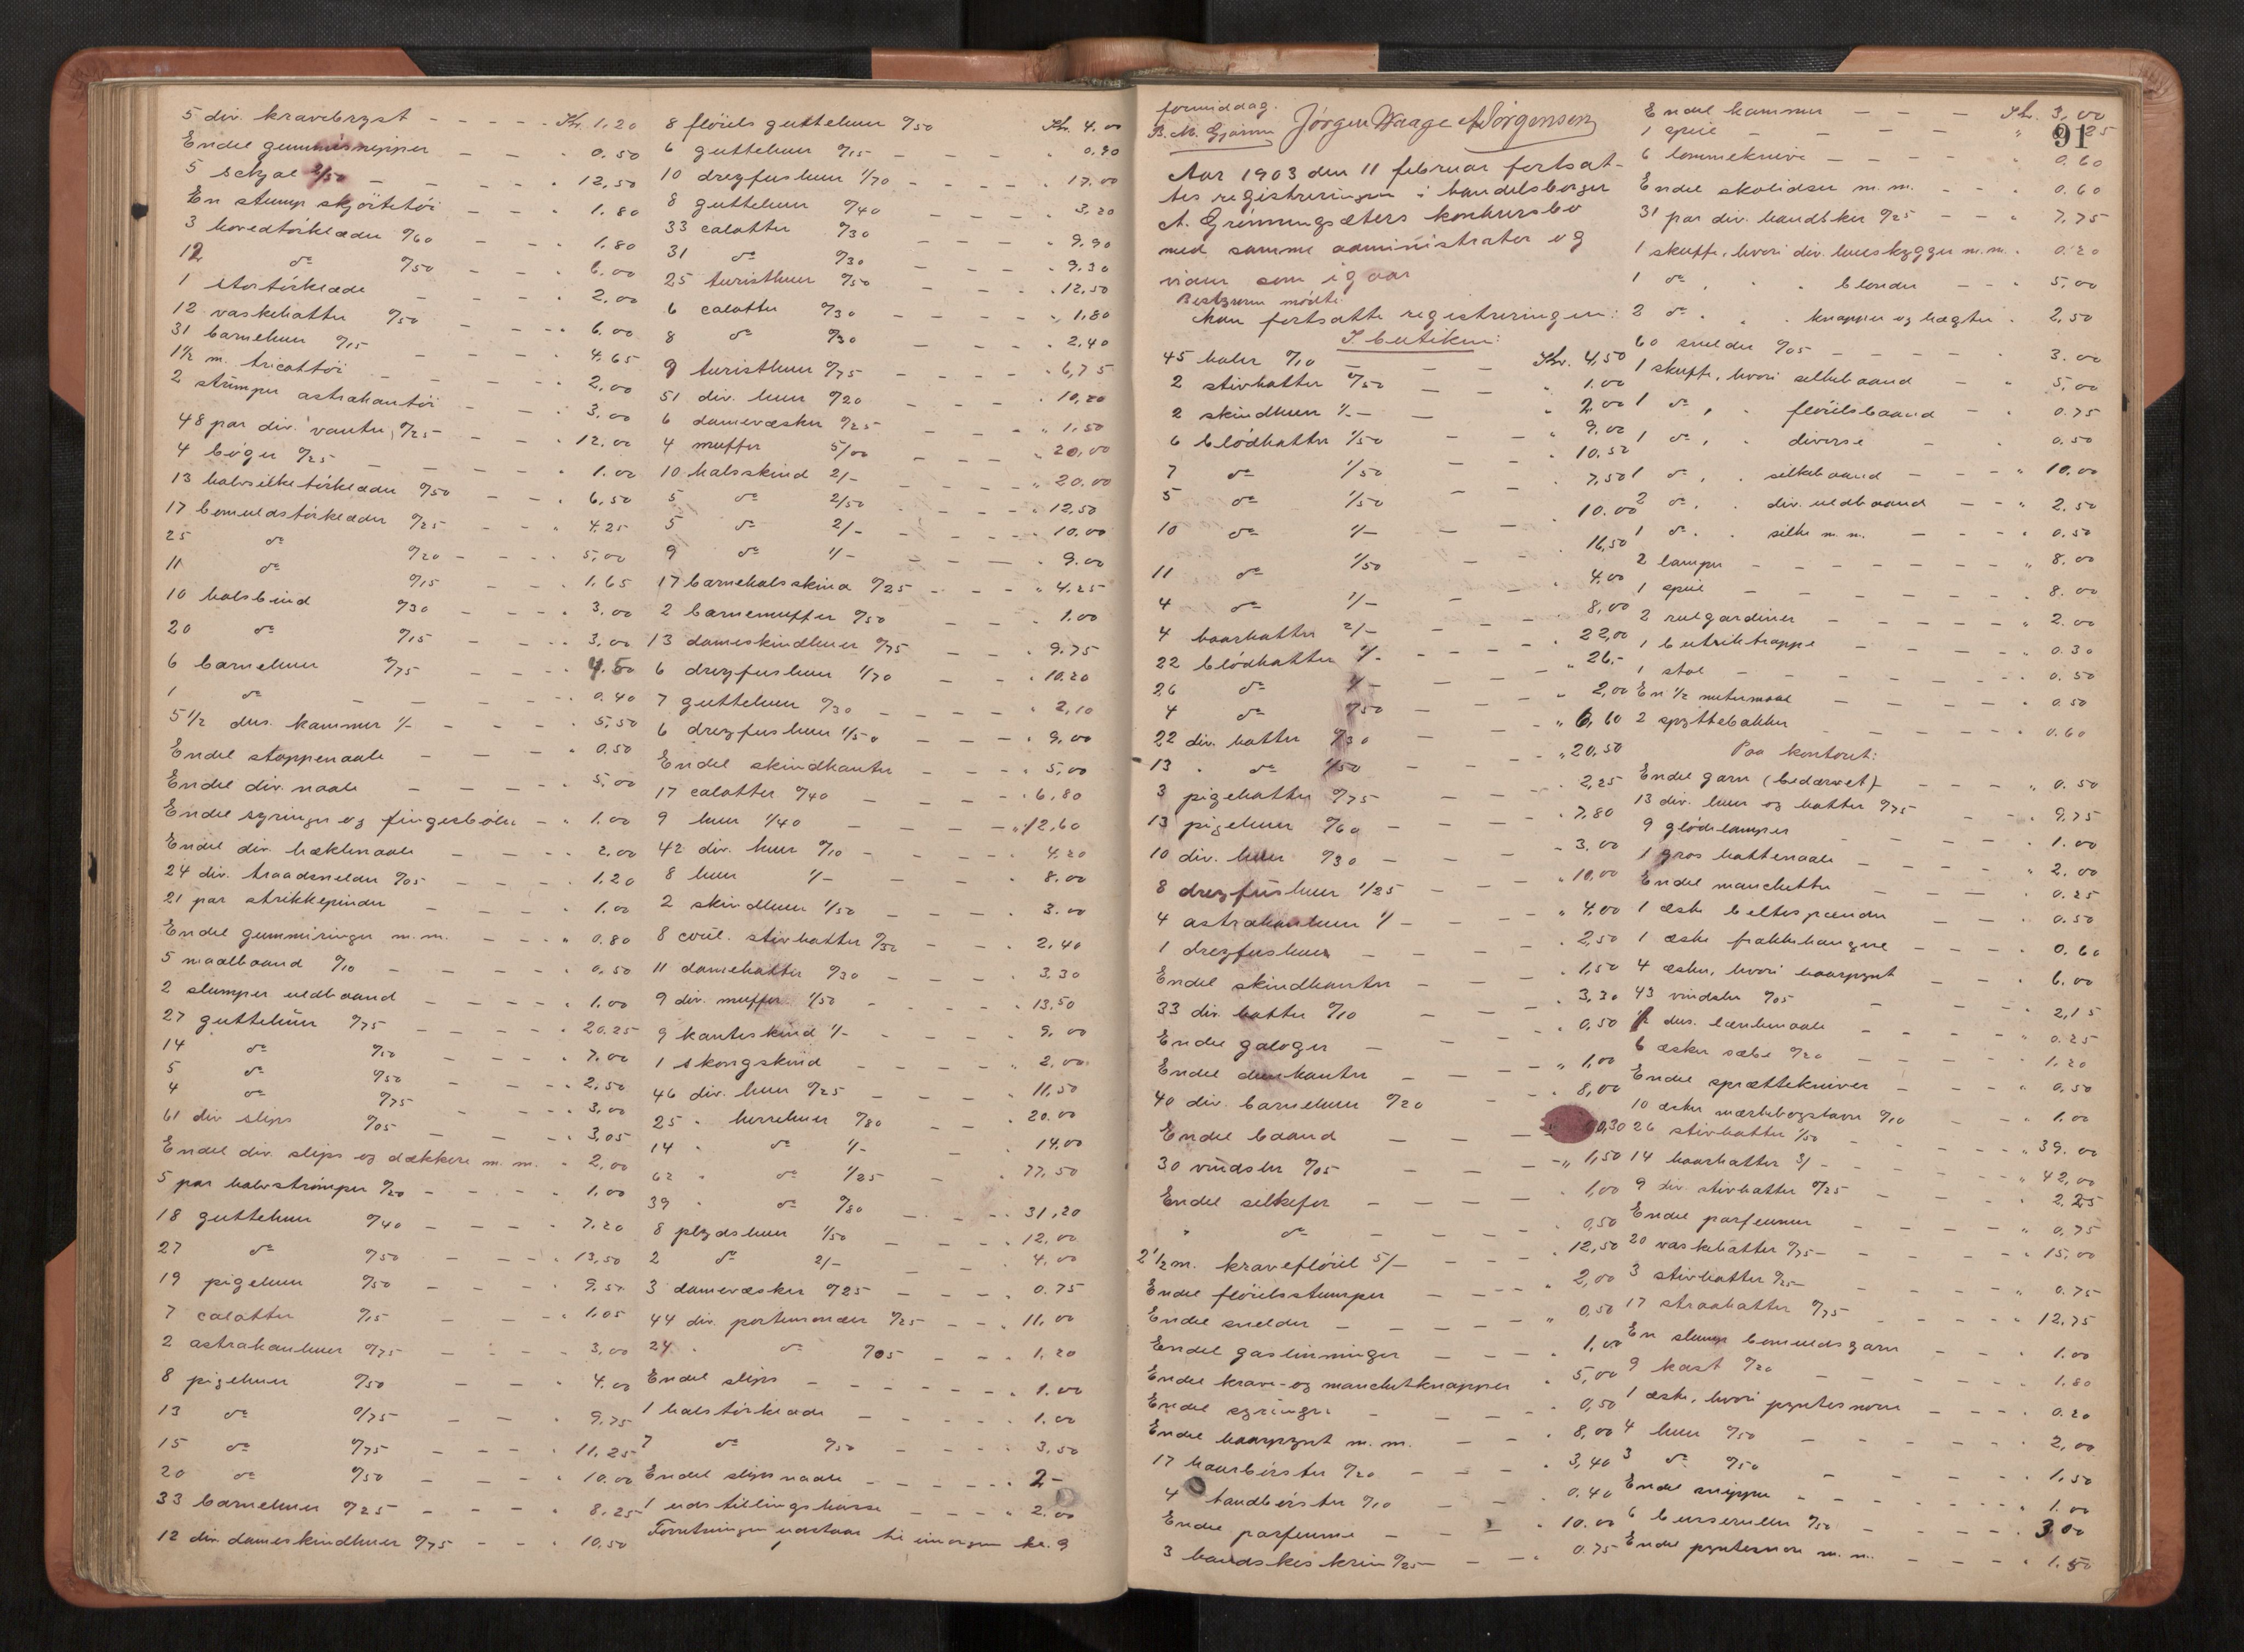 5 div. kravebryst - - - - - Kr. 1,20
Endel gummisnipper - - - 0,50
5 schal 2/50 - - - - 12,50
En stump skjörtetöi - - - 1.80
3 hovedtörklæder %60 - - - 1.80
12 do %50 - - - 6.00
1 stortörklæde - - - 2,00
12 vaskehatter %50 - - - 6.00
31 barneluer %15 - - - 4.65
1½ m. tricottöi - - - 2,00
2 stumper astrakantöi - - 3,00
48 par div. vanter, %25 - - 12,00
4 böger %25 - - - 1.00
13 halvsilketörklæder %50 - - 6,50
17 bomuldstörklæder %25 - - 4.25
25 do %20 - - - 5,00
11 do %15 - - - 1.65
10 halsbind %30 - - - 3,00
20 do %15 - - - 3.00
6 barneluer %75 - - - 4.50
1 do - - - 0.40
5 1/2 dus. kammer 1/- - - - 5,50
Endel stoppenaale - - - 0.50
Endel div. naale - - - 5,00
Endel syringer og fingerbölle - 1.00
Endel div. hæklenaale - - - 2.00
24 div. traadsneller %05 - - - 1.20
21 par strikkepinder - - - 1.00
Endel gummiringer m.m. - - - 0.80
5 maalbaand %10 - - - 0,50
2 slumper uldbaand - - - 1.00
27 gutteluer %75 - - - 20.25
14 do %50 - - - 7.00
5 do %50 - - - 2,50
4 do %75 - - - 3,00
61 div slips %05 - - - 3,05
Endel div. slips og dækkere m. m. 2,00
5 par halvströmper %20 - - - 1.00
18 gutteluer %40 - - - 7.20
27 do %50 - - - 13,50
19 pigeluer %50 - - - 9.50
7 calotter %15 - - - 1.05
2 astrakanluer %75 - - - 3,00
8 pigeluer %50 - - - 4.00
13 do %75 - - - 9,75
15 do %75 - - - 11,25
20 do %50 - - - 10.00
33 barneluer %25 - - - 8,25
12 div. dameskindluer %75 - - 10,50
8 flöiels gutteluer %50 Kr. 4.00
6 gutteluer %15 - - - 0,90
10 dreyfusluer 1/70 - - - 17.00
8 gutteluer %40 - - - 3,20
33 calotter %30 - - - 9.90
31 do %30 - - - 9.30
25 turistluer %50 - - - 12,50
6 calotter %30 - - - 1,80
8 do %30 - - - 2.40
9 turistluer %75 - - - 6,75
51 div. luer %20 - - - 10,20
6 damevæsker %25 - - - 1,50
4 muffer 5/00 - - - 20,00
10 halsskind 2/- - - - 20.00
5 do 2/50 - - - 12,50
5 do 2/- - - - 10.00
9 do 1/- - - - 9.00
17 barnehalsskind %25 - - - 4,25
2 barnemuffer %50 - - - 1.00
13 dameskindluer %75 - - 9.75
6 dreyfusluer 1/70 - - 10.20
7 gutteluer %30 - - - 2,10
6 dreyfusluer 1/50 - - - 9,00
Endel skindkanter - - - 5,00
17 calotter %40 - - - 6,80
9 luer 1/40 - - - 12,60
42 div. luer %10 - - - 4.20
8 luer 1/- - - - 8.00
2 skindluer 1/50 - - - 3.00
8 couil. stivhatter %30 - - 2,40
11 damehatter %30 - - - 3.30
9 div. muffer 1/50 - - - 13,50
9 kanteskind 1/- - - - 9,00
1 skongskind - - - 2,00
46 div. luer %25 - - - 11,50
25 " herreluer %80 - - 20.00
14 " do 1/- - - 14,00
62 " do 1/25 - - 77,50
39 " do %80 - - 31,20
8 plydsluer 1/50 - - - 12,00
2 do 2/- - - - 4,00
3 damevæsker %25 - - - 0.75
44 div. portemonæer %25 - - 11.00
24 " do %05 - - 1,20
Endel slips - - - 1.00
1 halstörklæde - - - 1.00
7 do %50 - - - 3,50
Endel slipsnaale - - - 2-
1 udstillingskasse - - - 2.00
Forretningen udstaar til imorgen kl. 9
formiddag.
B. M. Gjærum Jörgen Waage A Sörgensen
Aar 1903 den 11 februar fortsat-
tes registreringen i handelsborger
A. Grönningsæters konkursbo
med samme administrator og
vidner som igaar
Bestyreren mödte.
Man fortsatte registreringen:
I butiken:
45 huer %10 - - - Kr. 4,50
2 stivhatter %50 - - 1.00
2 skindluer 1/- - - 2,00
6 blödhatter 1/50 - - 9.00
7 do 1/50 - - 10.50
5 do 1/50 - - 7,50
10 do 1/- - - 10.00
11 do 1/50 - - 16,50
4 do 1/- - - 4.00
4 haarhatter 2/- - - 8,00
22 blödhatter 1/- - - 22,00
26 do 1/- - - 26,-
4 do %50 - - 2,00
22 div. hatter %30 - - 6,60
13 " do 1/50 - - 20,50
3 pigehatter %75 - - 2,25
13 pigeluer %60 - - 7,80
10 div. luer %30 - - 3.00
8 dreyfusluer 1/25 - - 10,00
4 astrakanluer 1/- - - 4.00
1 dreyfusluer - - 2,50
Endel skindkanter - - 1,50
33 div. hatter %10 - - 3,30
Endel galoger - - 0,50
Endel dunkanter - - 1,00
40 div. barneluer %20 - - 8,00
Endel baand - - 0,30
30 vindsler %05 - - 1,50
Endel silkefor - - 1,00
" do - - 0,50
2 1/2 m. kraveflöiel 5/- - - 12,50
Endel flöielsstumper - - 2,00
Endel sneller - - 0,50
Endel gaslinninger - - 1,00
Endel krave- og manchetknapper 5,00
Endel syringer - - 0,50
Endel haarpynt m. m. - - 8,00
17 haarbörster %20 - - 3,40
4 tandbörster %10 - - 0.40
Endel parfeume - - 10.00
3 handskeskrin %25 - - 0.75
Endel kammer - - - Kr. 3,00
91
1 speil - - - 0,25
6 lommeknive - - - 0.60
Endel skolidser m. m. - - 0.60
31 par div. handsker %25 - - 7,75
1 skuffe, hvori div. lueskygger m. m. 0.20
1 do , " blonder - - 5,00
2 do " " knapper og hægter 2,50
60 sneller %05 - - - 3.00
1 skuffe, hvori silkebaand - 5,00
1 do , " flöielsbaand - 0.75
1 do , " diverse - 0.50
1 do , " silkebaand - - 10.00
2 do , " div. uldbaand - - 2.50
1 do " " silke m. m. - - 0.50
2 lamper - - - 8.00
1 speil - - - 8.00
2 rulgardiner - - - 2.00
1 butriktrappe - - - 0.30
1 stol - - - 0.50
En 1/2 metermaal - - - 0.50
2 spyttebakker - - - 0.60
Paa kontoret:
Endel garn (bedærvet) - - 0.50
13 div. luer og hatter %75 - - 9,75
9 glödelamper - - - 1.00
1 gros hattenaale - - - 2.00
Endel manchetter - - - 0.25
1 æske beltespænder - - 0.50
1 æske frakkehængere - - 0.60
4 æsker, hvori haarpynt - 6.00
43 vindsler %05 - - 2,15
1/2 dus. lænkenaale - - 0.25
6 æsker sæbe %20 - - 1.20
Endel sprætteknivere - - 0,50
10 æsker mærkebogstaver %10 - 1.00
26 stivhatter 1/50 - - 39.00
14 haarhatter 3/- - - 42,00
9 div stivhatter %25 - - 2.25
Endel parfeumer - - 0,75
20 vaskehatter %75 - - 15,00
3 stivhatter %25 - - 0.75
17 straahatter %75 - - 12,75
En slump bomuldsgarn - - 1.00
9 kast %20 - - 1.80
1 æske, hvori pyntesnore - - 0.20
4 luer %50 - - 2,00
3 do %50 - - 1,50
Endel snipper - - 1.00
6 - - 3.00
Endel pyntesnore m. m. - - 1.50